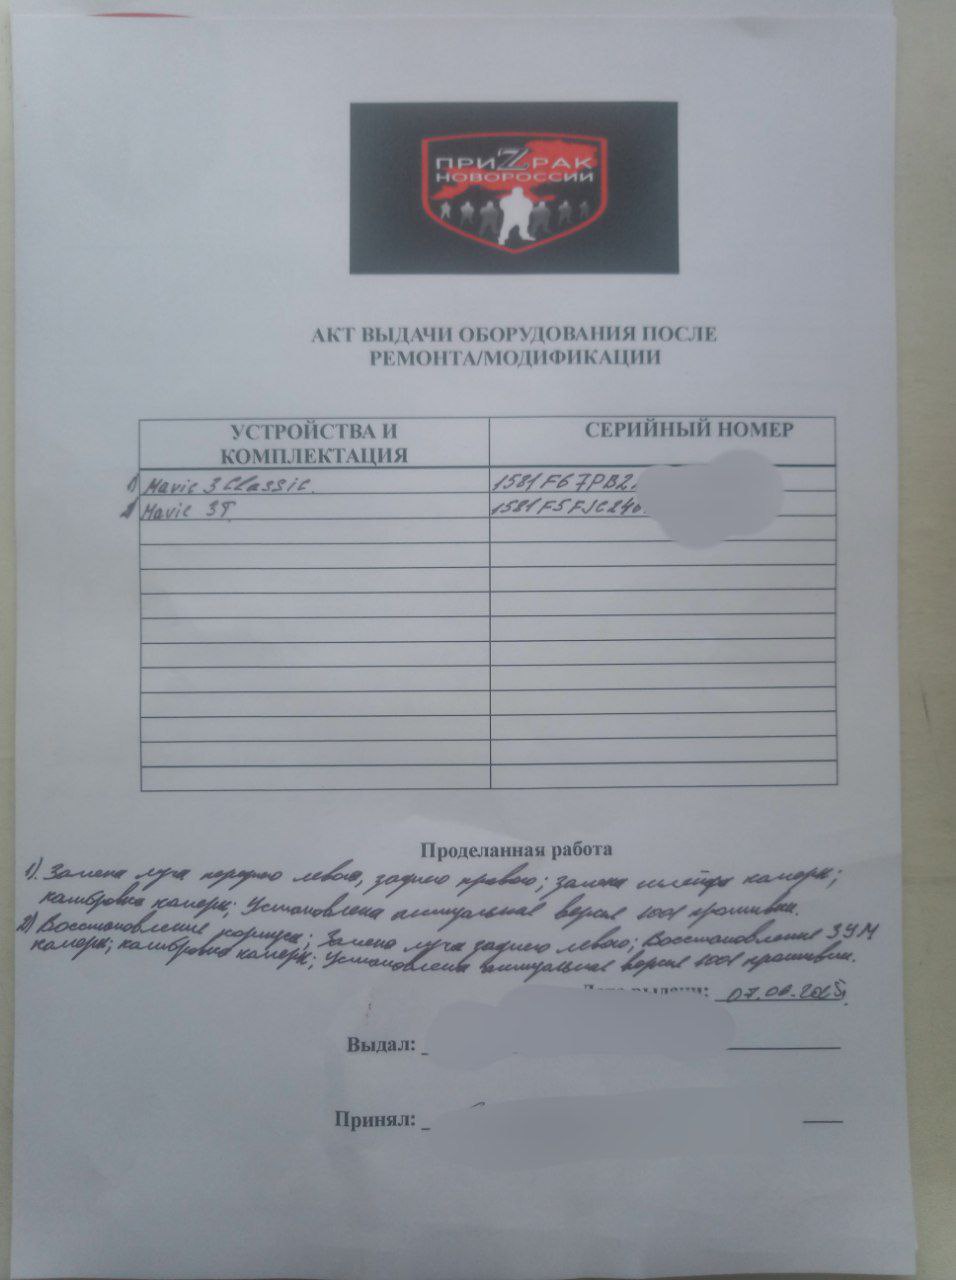 ПРИZРАК
НОВОРОССИИ
АКТ ВЫДАЧИ ОБОРУДОВАНИЯ ПОСЛЕ
РЕМОНТА/МОДИФИКАЦИИ
УСТРОЙСТВА И КОМПЛЕКТАЦИЯ СЕРИЙНЫЙ НОМЕР
1) Mavic 3 Classic. 1581F67PB2
2) Mavic 3T 1581F5FJC24
Проделанная работа
1). Замена луча переднего левого, заднего правого; замена шлейфа камеры;
калибровка камеры; Установлена актуальная версия 1001 прошивки.
2) Восстановление корпуса; Замена луча заднего левого; Восстановление ЗУМ
камеры; калибровка камеры; Установлена актуальная версия 1001 прошивки.
Дата выдачи: 07.06.2025.
Выдал:
Принял: